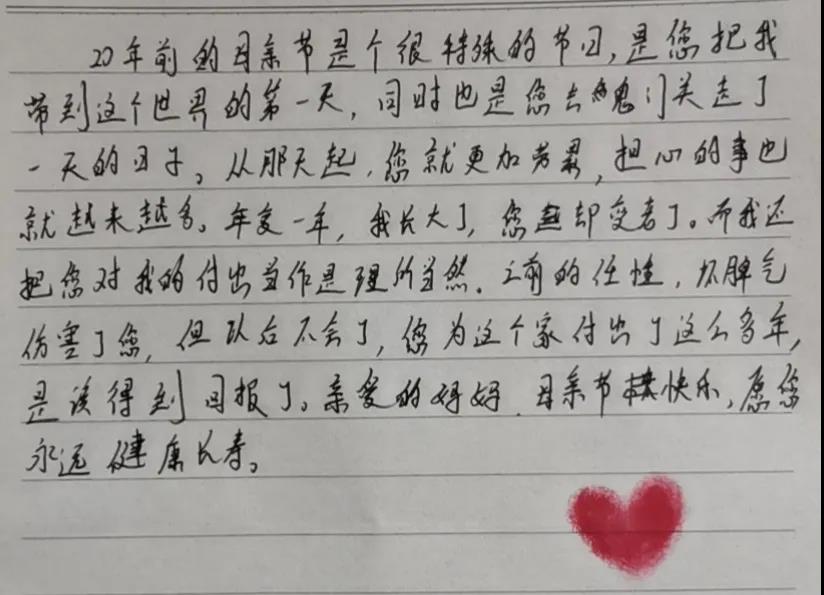 20年前的母亲节是个很特殊的节日,是您把我
带到这个世界的第一天,同时也是您去鬼门关走了
一天的日子。从那天起,您就更加劳累,担心的事也
就越来越多。年复一年,我长大了,您却变老了。而我还
把您对我的付出当作是理所当然。之前的任性,坏脾气
伤害了您,但以后不会了,您为这个家付出了这么多年,
是该得到回报了。亲爱的妈妈.母亲节快乐,愿您
永远健康长寿。